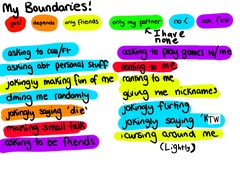 My Boundaries!
yes! depends any friends only my partner no :( ask first
↑ I have none
asking to call/rt
asking abt personal stuff
jokingly making fun of me
dming me randomly
jokingly saying 'die'
making small talk
asking to be friends
asking to play games w/me
venting to me
ranting to me
giving me nicknames
jokingly flirting
jokingly saying 'KTW
cursing around me
(Lightly)